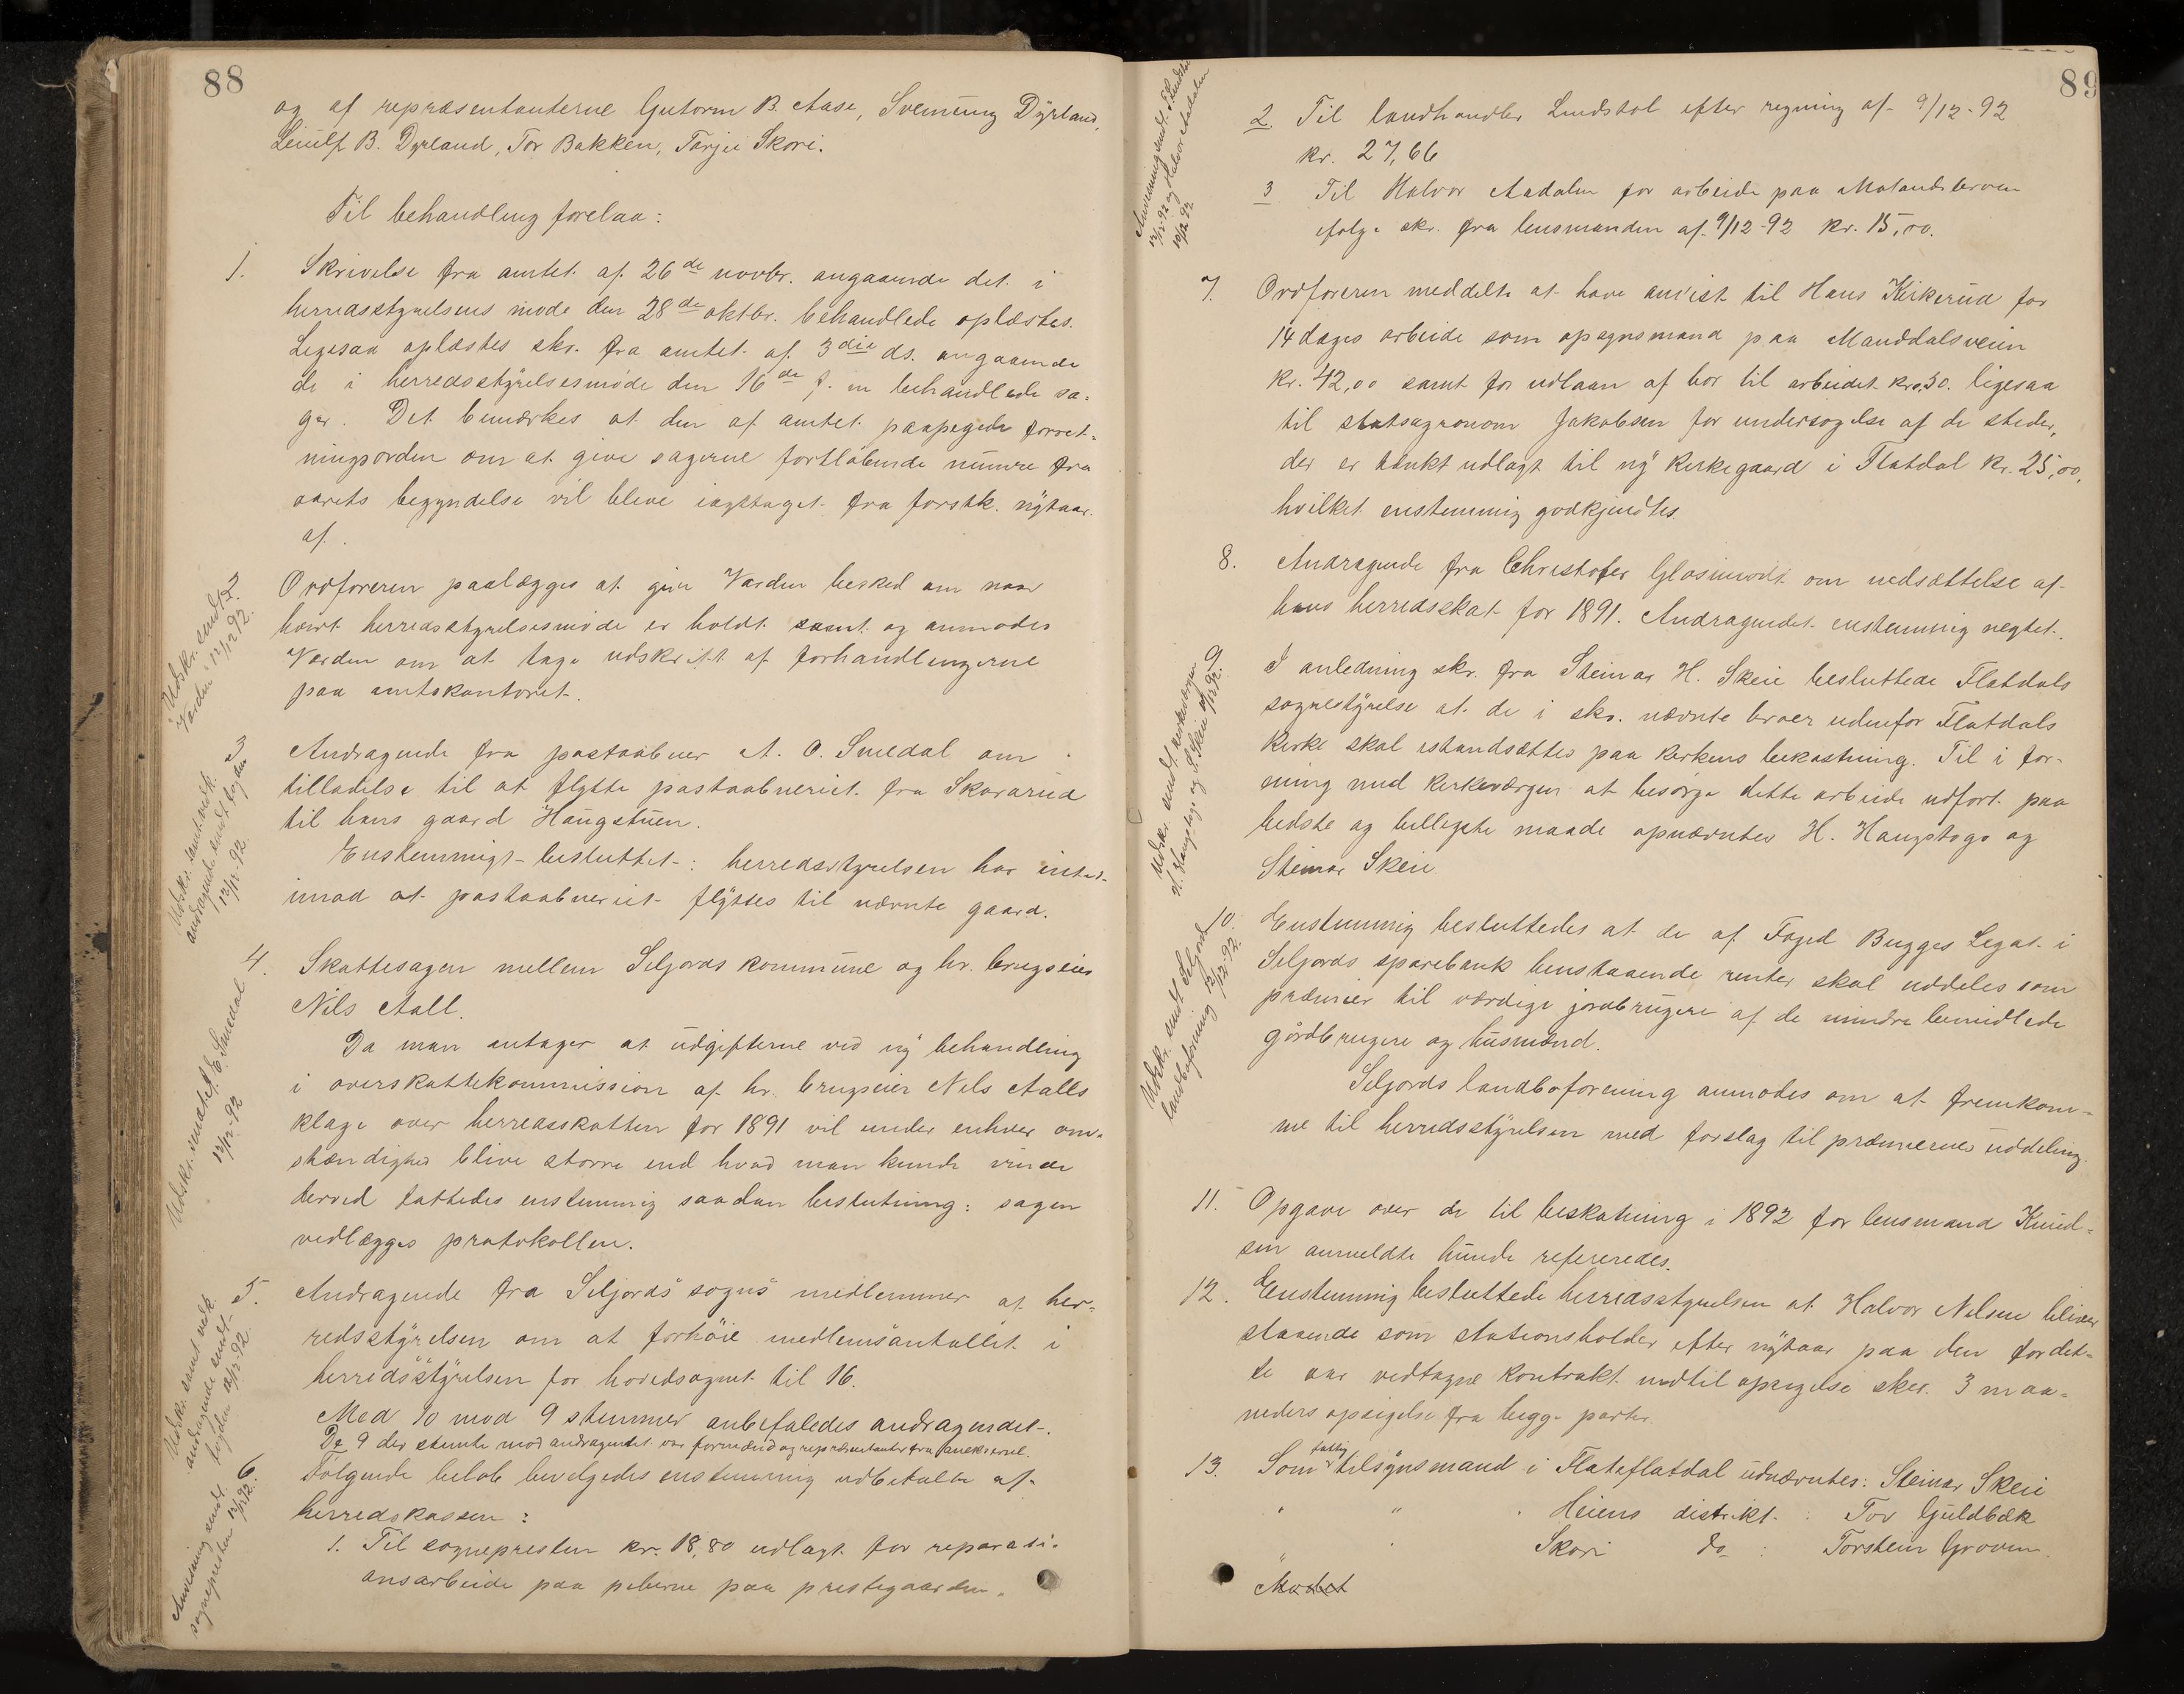 88
og af repræsentanterne Gutorm B. Aase, Sveinung Dyrland,
Leiulf B. Dyrland, Tor Bakken, Tarjei Skori.
Til behandling forelaa:
1. Skrivelse fra amtet af 26de novbr. angaaende det i
herredsstyrelsens møde den 28de oktbr. behandlede oplæstes.
Ligesaa oplæstes skr. fra amtet af 3die ds. angaaende
de i herredsstyrelsesmøde den 16de f. m behandlede sa-
ger. Det bemærkes at den af amtet paapegede forret-
ningsorden om at give sagerne fortløbende numre fra
aarets begyndelse vil blive iagttaget fra førstk. nytaar
af.
Udskr. sendt
Varden 12/12 92.
2. Ordføreren paalægges at give Varden besked om naar
hvert herredsstyrelsesmøde er holdt samt og anmodes
Varden om at tage udskrift af forhandlingerne
paa amtskontoret.
Udskr. samt vedk.
andragende sendt fogden
12/12-92.
3 Andragende fra postaabner A. O. Smedal om
tilladelse til at flytte postaabneriet fra Skorarud
til hans gaard Haugstuen.
Enstemmigt besluttet: herredsstyrelsen har intet
imod at postaabneriet flyttes til nævnte gaard.
Udskr. sendt E. Smedal
12/12-92
4. Skattesagen mellem Seljords kommune og hr. brugseier
Nils Aall.
Da man antager at udgifterne ved ny behandling
i overskattekommission af hr. brugseier Nils Aalls
klage over herredsskatten for 1891 vil under enhver om-
stændighed blive større end hvad man kunde vinde
derved fattedes enstemmig saadan beslutning: sagen
vedlægges protokollen.
Udskr. samt vedk.
andragende sendt
fogden 12/12 92.
5. Andragende fra Seljords sogns medlemmer af her-
redsstyrelsen om at forhöie medlemsantallet i
herredsstyrelsen for hovedsognet til 16.
Med 10 mod 9 stemmer anbefaledes andragendet.
De 9 der stemte mod andragendet var formænd og repræsentanter fra anekserne.
Anvisning sendt
sognepresten 12/12 92.
6. Følgende beløb bevilgedes enstemmig udbetalte af
herredskassen:
1. Til sognepresten kr. 18,80 udlagt for reparasi-
onsarbeide paa peberne paa prestegaarden.
89
Anvisning sendt
12/12-92 og Halvor Aadalen
10/12 92
2 Til landhandler Lindstøl efter regning af 9/12-92
kr. 27,66
3 Til Halvor Aadalen for arbeide paa Molandsbroen
ifølge skr. fra lensmanden af 9/12-92 kr. 15,00.
7. Ordføreren meddelte at have anvist til Hans Kirkerud for
14 dages arbeide som opsynsmand paa Manddalsveien
kr. 42,00 samt for udlaan af bor til arbeidet kr. 0,50. ligesaa
til statsagronom Jakobsen for undersøgelse af de steder,
der er tænkt udlagt til ny kirkegaard i Flatdal kr. 25,00,
hvilket enstemmig godkjendtes.
8. Andragende fra Christofer Glosimodt om nedsættelse af
hans herredsskat for 1891. Andragendet enstemmig negtet.
Udskr. sendt kirkeværgen
H. Haugstoga og S. Skeie 12/12 92.
9 I anledning skr. fra Steinar H. Skeie besluttede Flatdals
sognestyrelse at de i skr. nævnte broer udenfor Flatdals
kirke skal istandsættes paa kirkens bekostning. Til i for-
ening med kirkeværgen at besørge dette arbeide udført paa
bedste og billigste maade opnævntes H. Haugstoga og
Steinar Skeie.
Udskr. sendt Seljord
landboforening 12/12-92.
10. Enstemmig besluttedes at de af Foged Bugges Legat i
Seljords sparebank henstaaende renter skal uddeles som
præmier til værdige jordbrugere af de mindre bemidlede
gårdbrugere og husmænd.
Seljords landboforening anmodes om at fremkom-
me til herredsstyrelsen med forslag til præmiernes uddeling.
11. Opgave over de til beskatning i 1892 for lensmand Knud-
sen anmeldte hunde refereredes.
12. Enstemmig besluttede herredsstyrelsen at Halvor Nilsen bliver
staaende som stationsholder efter nytaar paa den for det-
te aar vedtagne kontrakt indtil opsigelse sker. 3 maa-
neders opsigelse fra begge parter.
13. Som fattigtilsynsmand i Flateflatdal udnævntes: Steinar Skeie
" " " Heiens distrikt : Tov Guldbæk
" " Skori do : Torstein Groven.
Mødet